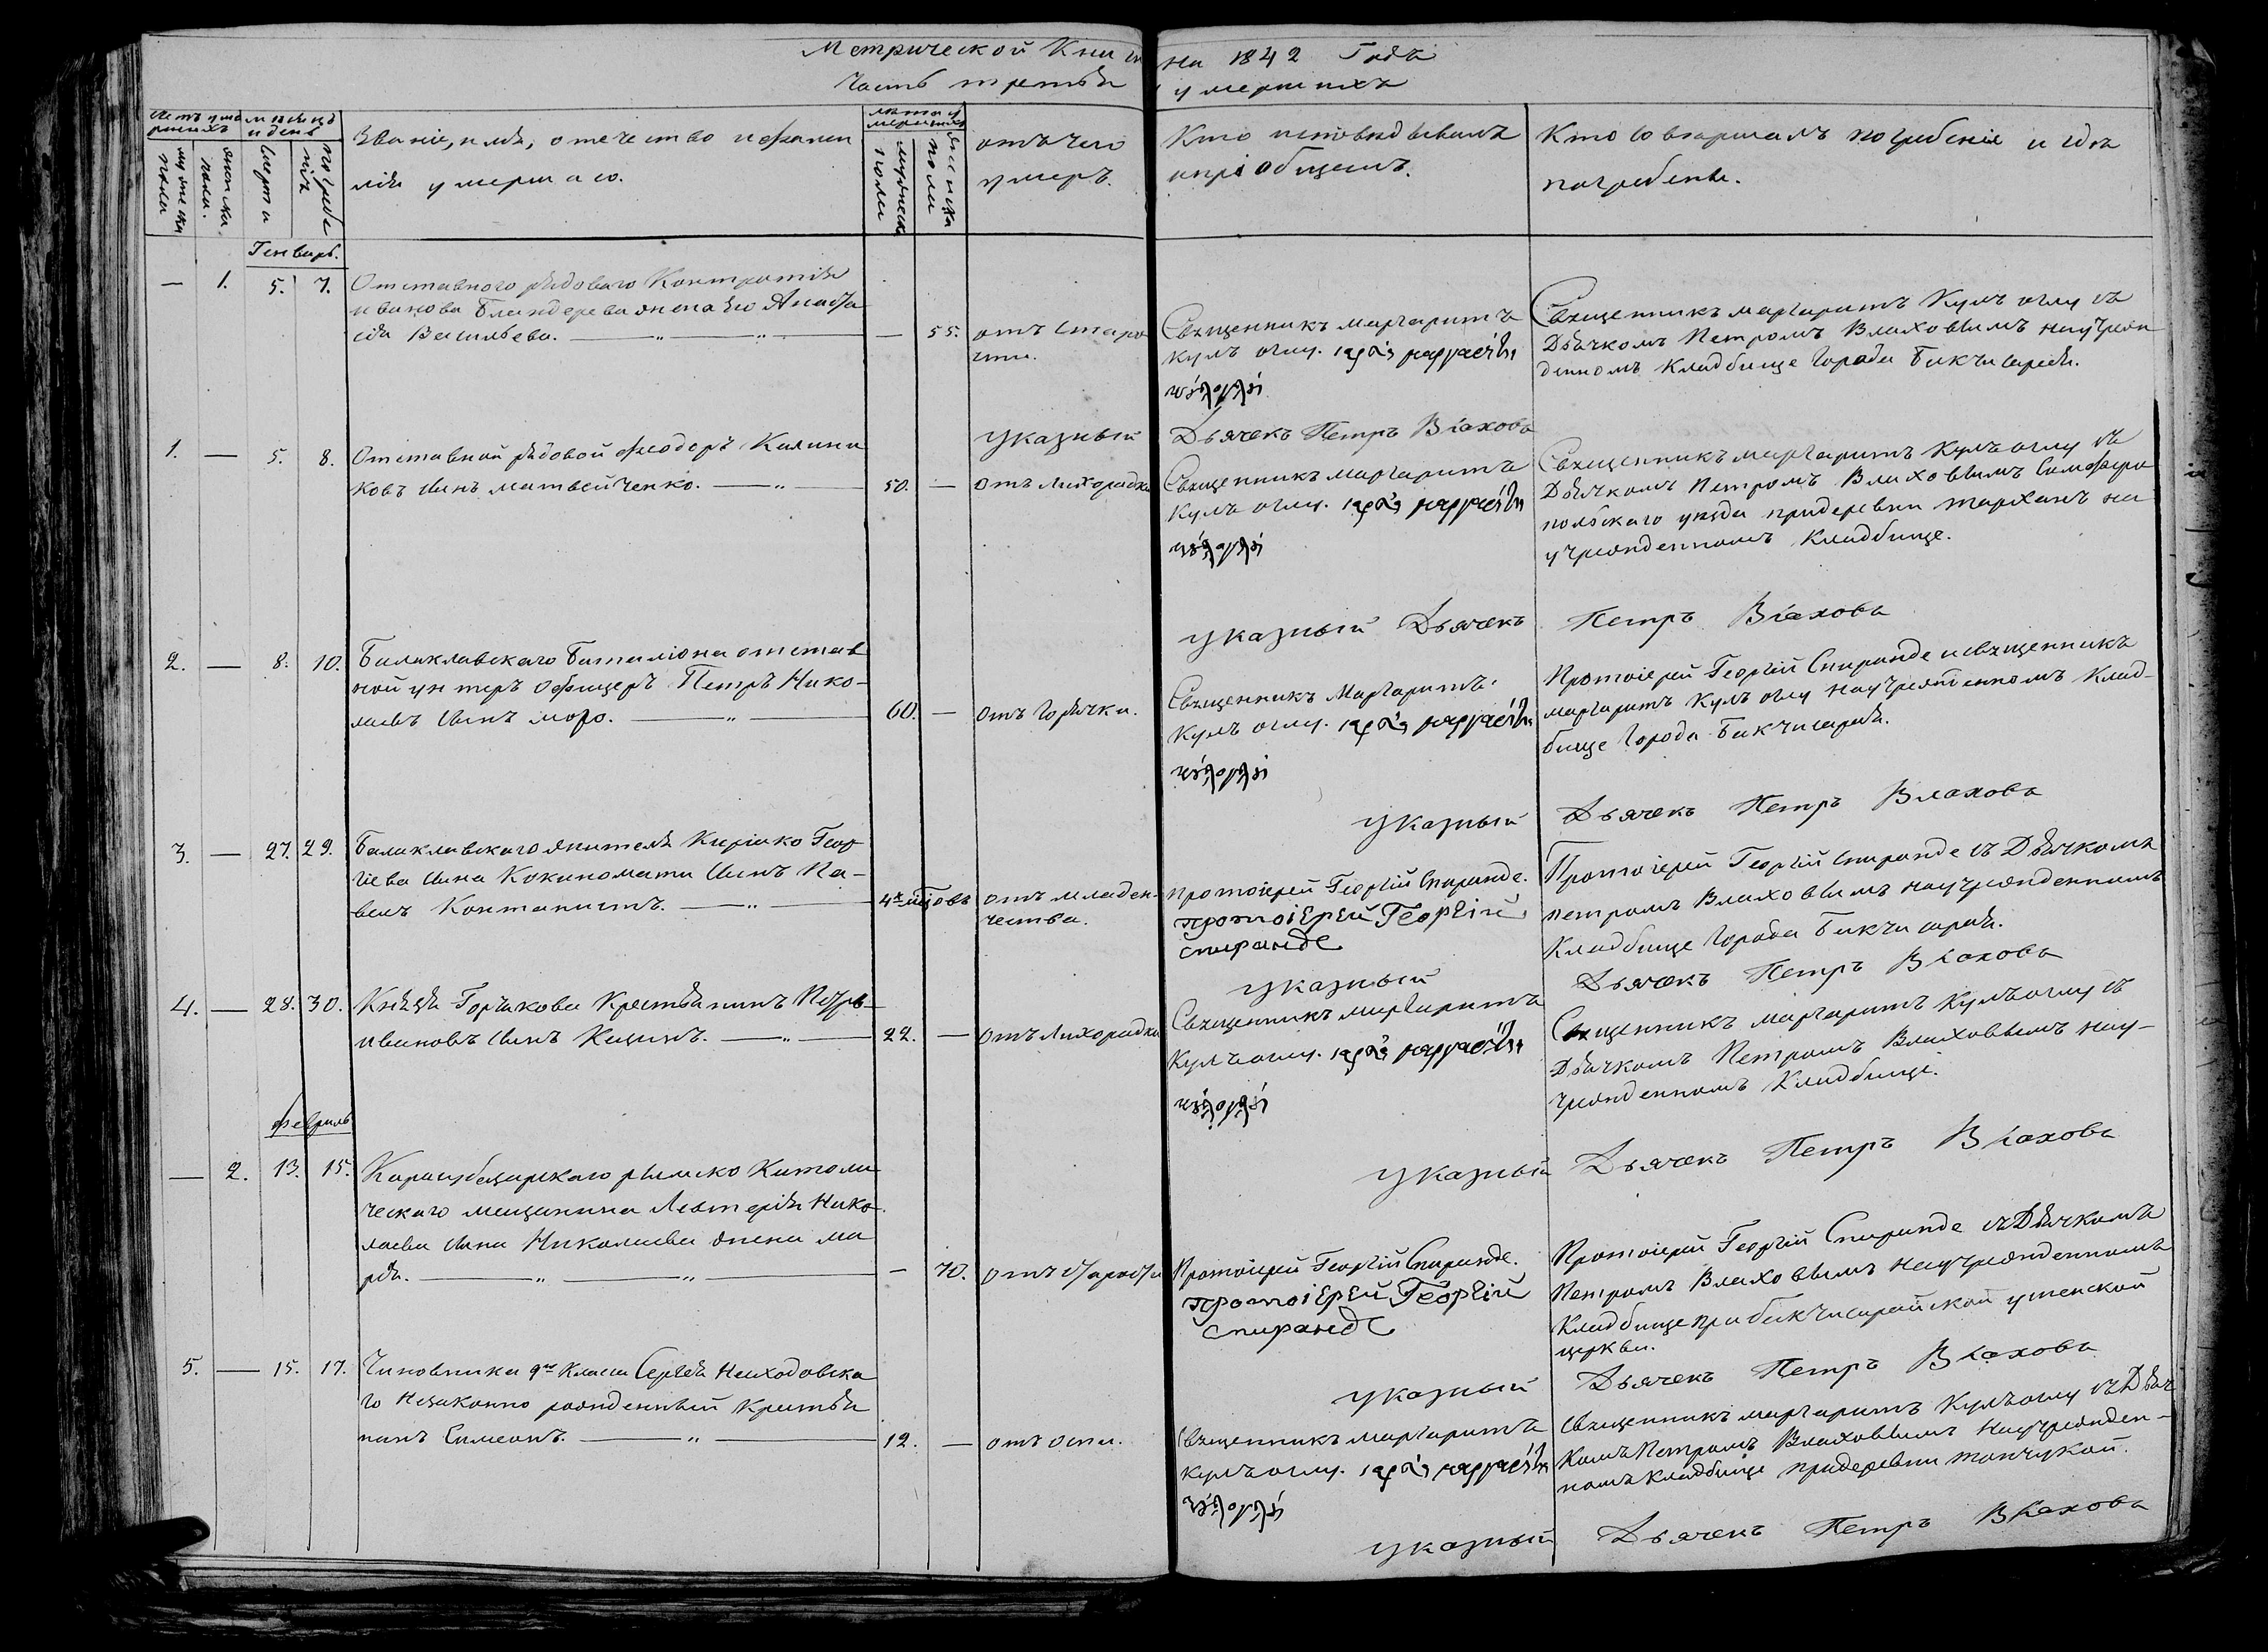 Метрической Книги на 1842 Годъ
Часть третья умершихъ
Счетъ умершихъ
мужеска пола
женска пола.
месяцъ и день
смерти
погребенія
Званіе, имя, отечество и фамилія умершаго.
лета умершихъ
мужеска пола
женска пола
отъ чего умеръ.
Кто исповѣдывалъ и пріобщалъ.
Кто совершалъ погребеніе и гдѣ погребены.
Генварь.
— 1. 5. 7.
Отставного рядоваго Контратія
иванова Бландерева жена его Анаста
сія Васильева.
— 55.
отъ старо
сти.
Священникъ маргаритъ
кулъ оглу. ιερεύς μαργαρίτης
κούλογλού
Священникъ маргаритъ Кулъ оглу съ
Дьячкомъ Петромъ Влаховымъ на учреж
денномъ Кладбище города Бакчисарая.
указный Дьячекъ Петръ Влаховъ
1. — 5. 8.
Отставной рядовой Феодоръ Калини
ковъ сынъ матвейченко.
50. —
отъ лихорадки
Священникъ маргаритъ
Кулъ оглу. ιερεύς μαργαρίτης
κούλογλού
Священникъ маргаритъ Кулъ оглу съ
Дьячкомъ Петромъ Влаховымъ Симферо
польскаго уезда придеревни тарханъ на
учрежденномъ Кладбище.
указный Дьячекъ Петръ Влаховъ
2. — 8. 10.
Балаклавскаго Баталіона отстав
ной унтеръ офицеръ Петръ Нико-
лаевъ сынъ моро.
60. —
отъ горячки.
Священникъ Маргаритъ
Кулъ оглу. ιερεύς μαργαρίτης
κούλογλού
Протоіерей Георгій Спиранде и священникъ
маргаритъ Кулъ оглу на учрежденномъ Клад-
бище города Бакчисарая.
указный Дьячекъ Петръ Влаховъ
3. — 27. 29.
Балаклавскаго жителя Киріако Геор
гіева сына Кокиномати сынъ Па-
велъ Контанистъ.
4хъ мцовъ
отъ младен-
чества.
протоіерей Георгій Спиранде.
протоіерей Георгій
спиранде
Протоіерей Георгій спиранде съ Дьячкомъ
петромъ Влаховымъ на учрежденномъ
Кладбище города Бакчисарая.
указный Дьячекъ Петръ Влаховъ
4. — 28. 30.
Князя Горчакова Крестьянинъ Петръ
ивановъ сынъ Кицинъ.
22. —
отъ лихорадки
Священникъ маргаритъ
Кулъ оглу. ιερεύς μαργαρίτης
κούλογλού
Священникъ маргаритъ Кулъ оглу съ
Дьячкомъ Петромъ Влаховымъ на у-
чрежденномъ Кладбище.
указный Дьячекъ Петръ Влаховъ
февраль
— 2. 13. 15.
Карасубазарскаго римско Католи
ческаго мещанина Левтерія Нико-
лаева сына Николаева жена ма
рія.
— 70.
отъ старости
Протоіерей Георгій Спиранде.
протоіерей Георгій
спиранде
Протоіерей Георгій Спиранде съ Дьячкомъ
Петромъ Влаховымъ на учрежденномъ
Кладбище при бакчисарайской успенской
церкви.
указный Дьячекъ Петръ Влаховъ
5. — 15. 17.
Чиновника 9го Класса Сергея Неиходовска
го Незаконно рожденный Крестья
нинъ Симеонъ.
12. —
отъ оспы.
Священникъ маргаритъ
кулъ оглу. ιερεύς μαργαρίτης
κούλογλού
Священникъ маргаритъ Кулъ оглу съ Дьяч
комъ Петромъ Влаховымъ на учрежден-
номъ кладбище придеревни топчукой.
указный Дьячекъ Петръ Влаховъ